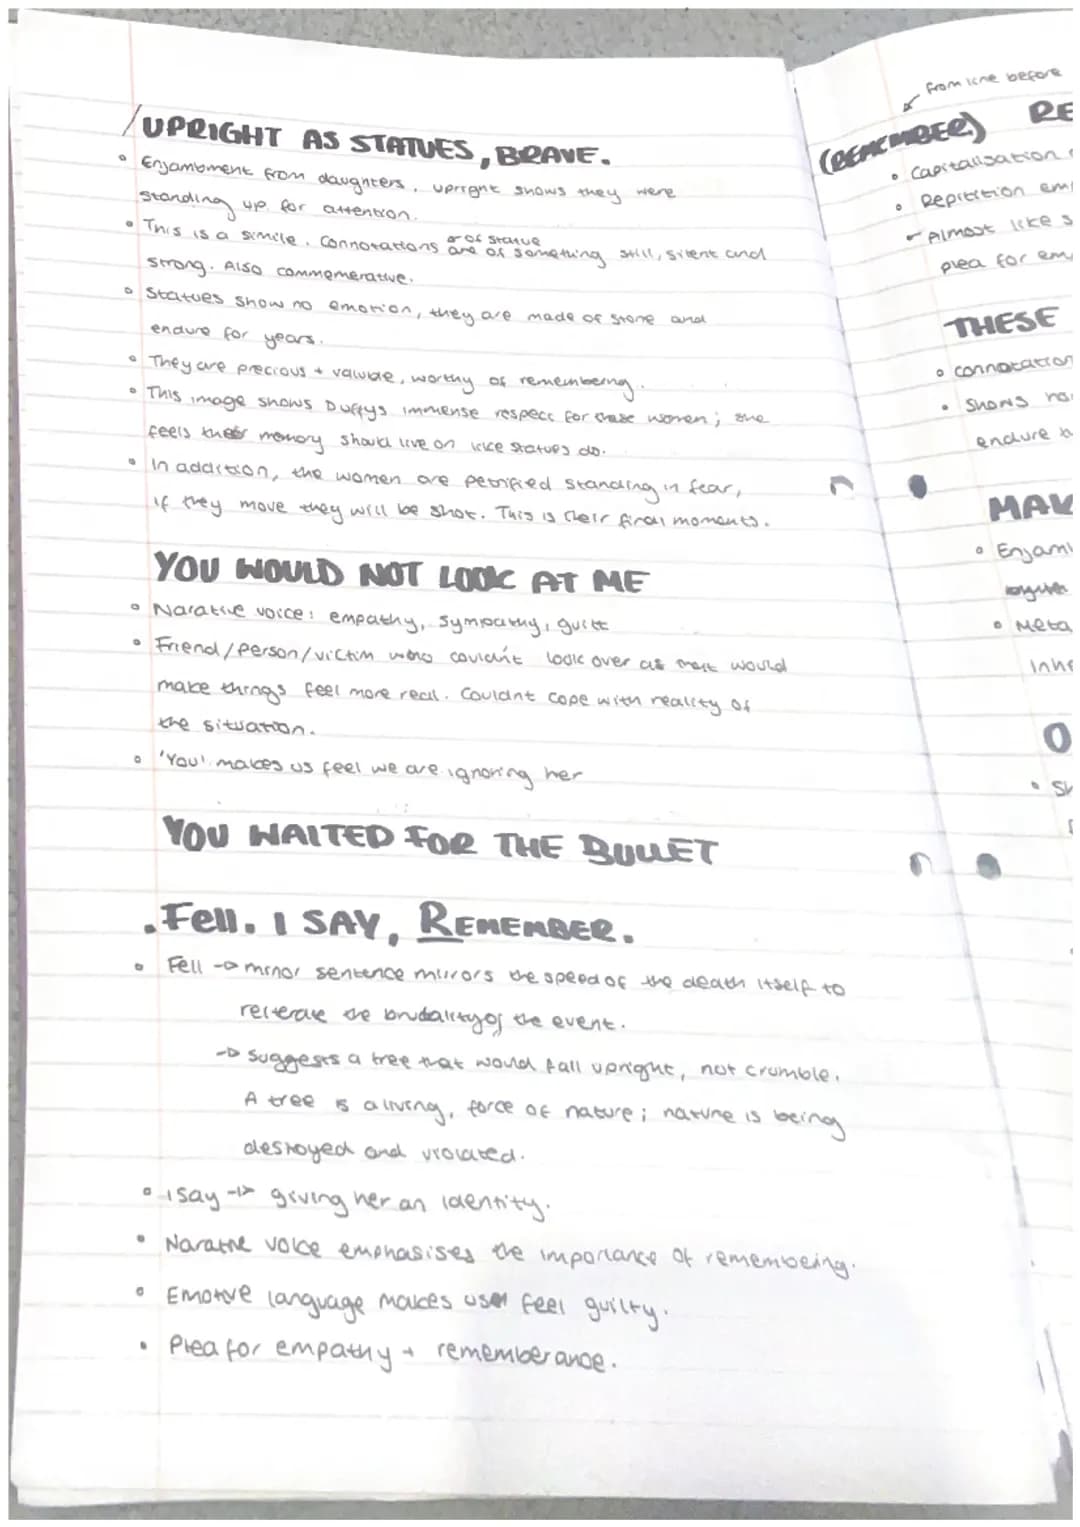 /UPRIGHT AS STATUES, BRAVE.
• Enjambment from daughters. Upright shows they were
standing up for attention.
• This is a simile. Connotations of statue are of something still, silent and
strong. Also commemerative.
• Statues show no emotion, they are made of stone and
endure for years.
• They are precious + valuble, worthy of remembering.
• This image shows Duffys immense respect for these women; she
feels their memory should live on like statues do.
• In addition, the women are petrified standing in fear,
if they move they will be shot. This is their final moments.
YOU WOULD NOT LOOK AT ME
• Narative voice: empathy, sympathy, guilt
• Friend/person/victim who couldn't look over as that would
make things feel more real. Couldnt cope with reality of
the situation.
• 'You' makes us feel we are ignoring her
YOU WAITED FOR THE BULLET
. Fell. I SAY, REMEMBER.
• Fell → minor sentence mirrors the speed of the death itself to
reiterate the brudality of the event.
→ Suggests a tree that would fall upright, not crumble.
A tree is a living, force of nature; nature is being
destroyed and violated.
• I say → giving her an identity.
• Narative voice emphasises the importance of remembeing.
• Emotive language makes user feel guilty.
• Plea for empathy + rememberance.
from line before
(REMEMBER) RE
• Capitalisation
• Repitition em
- Almost like s
plea for em
THESE
• connotation
• Shows
endure
MAK
• Enjam
• Meta
Inhe
O
• Sh